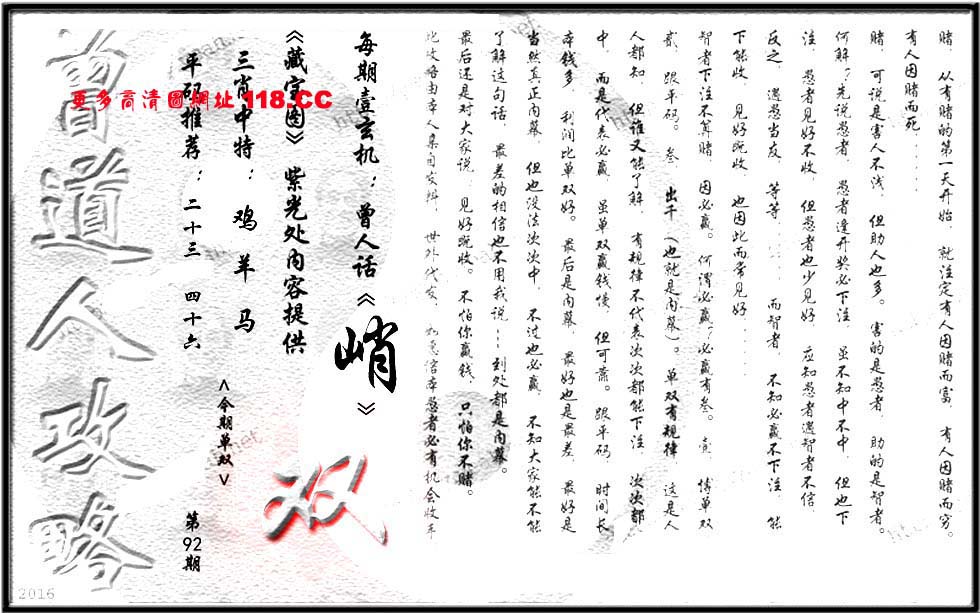 赌，从有赌的第一天开始，就注定有人因赌而富，有人因赌而穷。
有人因赌而死......
赌，可说是害人不浅，但助人也多。害的是愚者，助的是智者。
何解？先说愚者，愚者逢开奖必下注，虽不知中不中，但也下
注，愚者见好不收，但愚者也少见好，应知愚者遇智者不信，
反之，遇愚当友，等等......而智者，不知必赢不下注，能
下能收，见好就收，也因此而常见好......
智者下注不算赌，因必赢。何谓必赢？必赢有叁。壹，博单双
贰，跟平码。叁，出千（也就是内幕）。单双有规律，这是人
人都知，但谁又能了解，有规律不代表次次都能下注，次次都
中，而是代表必赢，虽单双赢钱慢，但可靠。跟平码，时间长
本钱多，利润比单双好。最后是内幕，最好也是最差，最好是
当然真正内幕，但也没法次次中，不过也必赢，不知大家能不能
了解这句话，最差的相信也不用我说......到处都是内幕。
最后还是对大家说，见好就收。不怕你赢钱，只怕你不赌。
此攻略由本人亲自发辑，世外代发，如愚信本愚者必有机会收车
每期壹玄机：曾人话《峭》
《藏宝图》紫光处内容提供
三肖中特：鸡 羊 马
<今期单双>
双
平码推荐：二十三 四十六
第92期
道人攻略
更多高清图网址 118.CC
2016